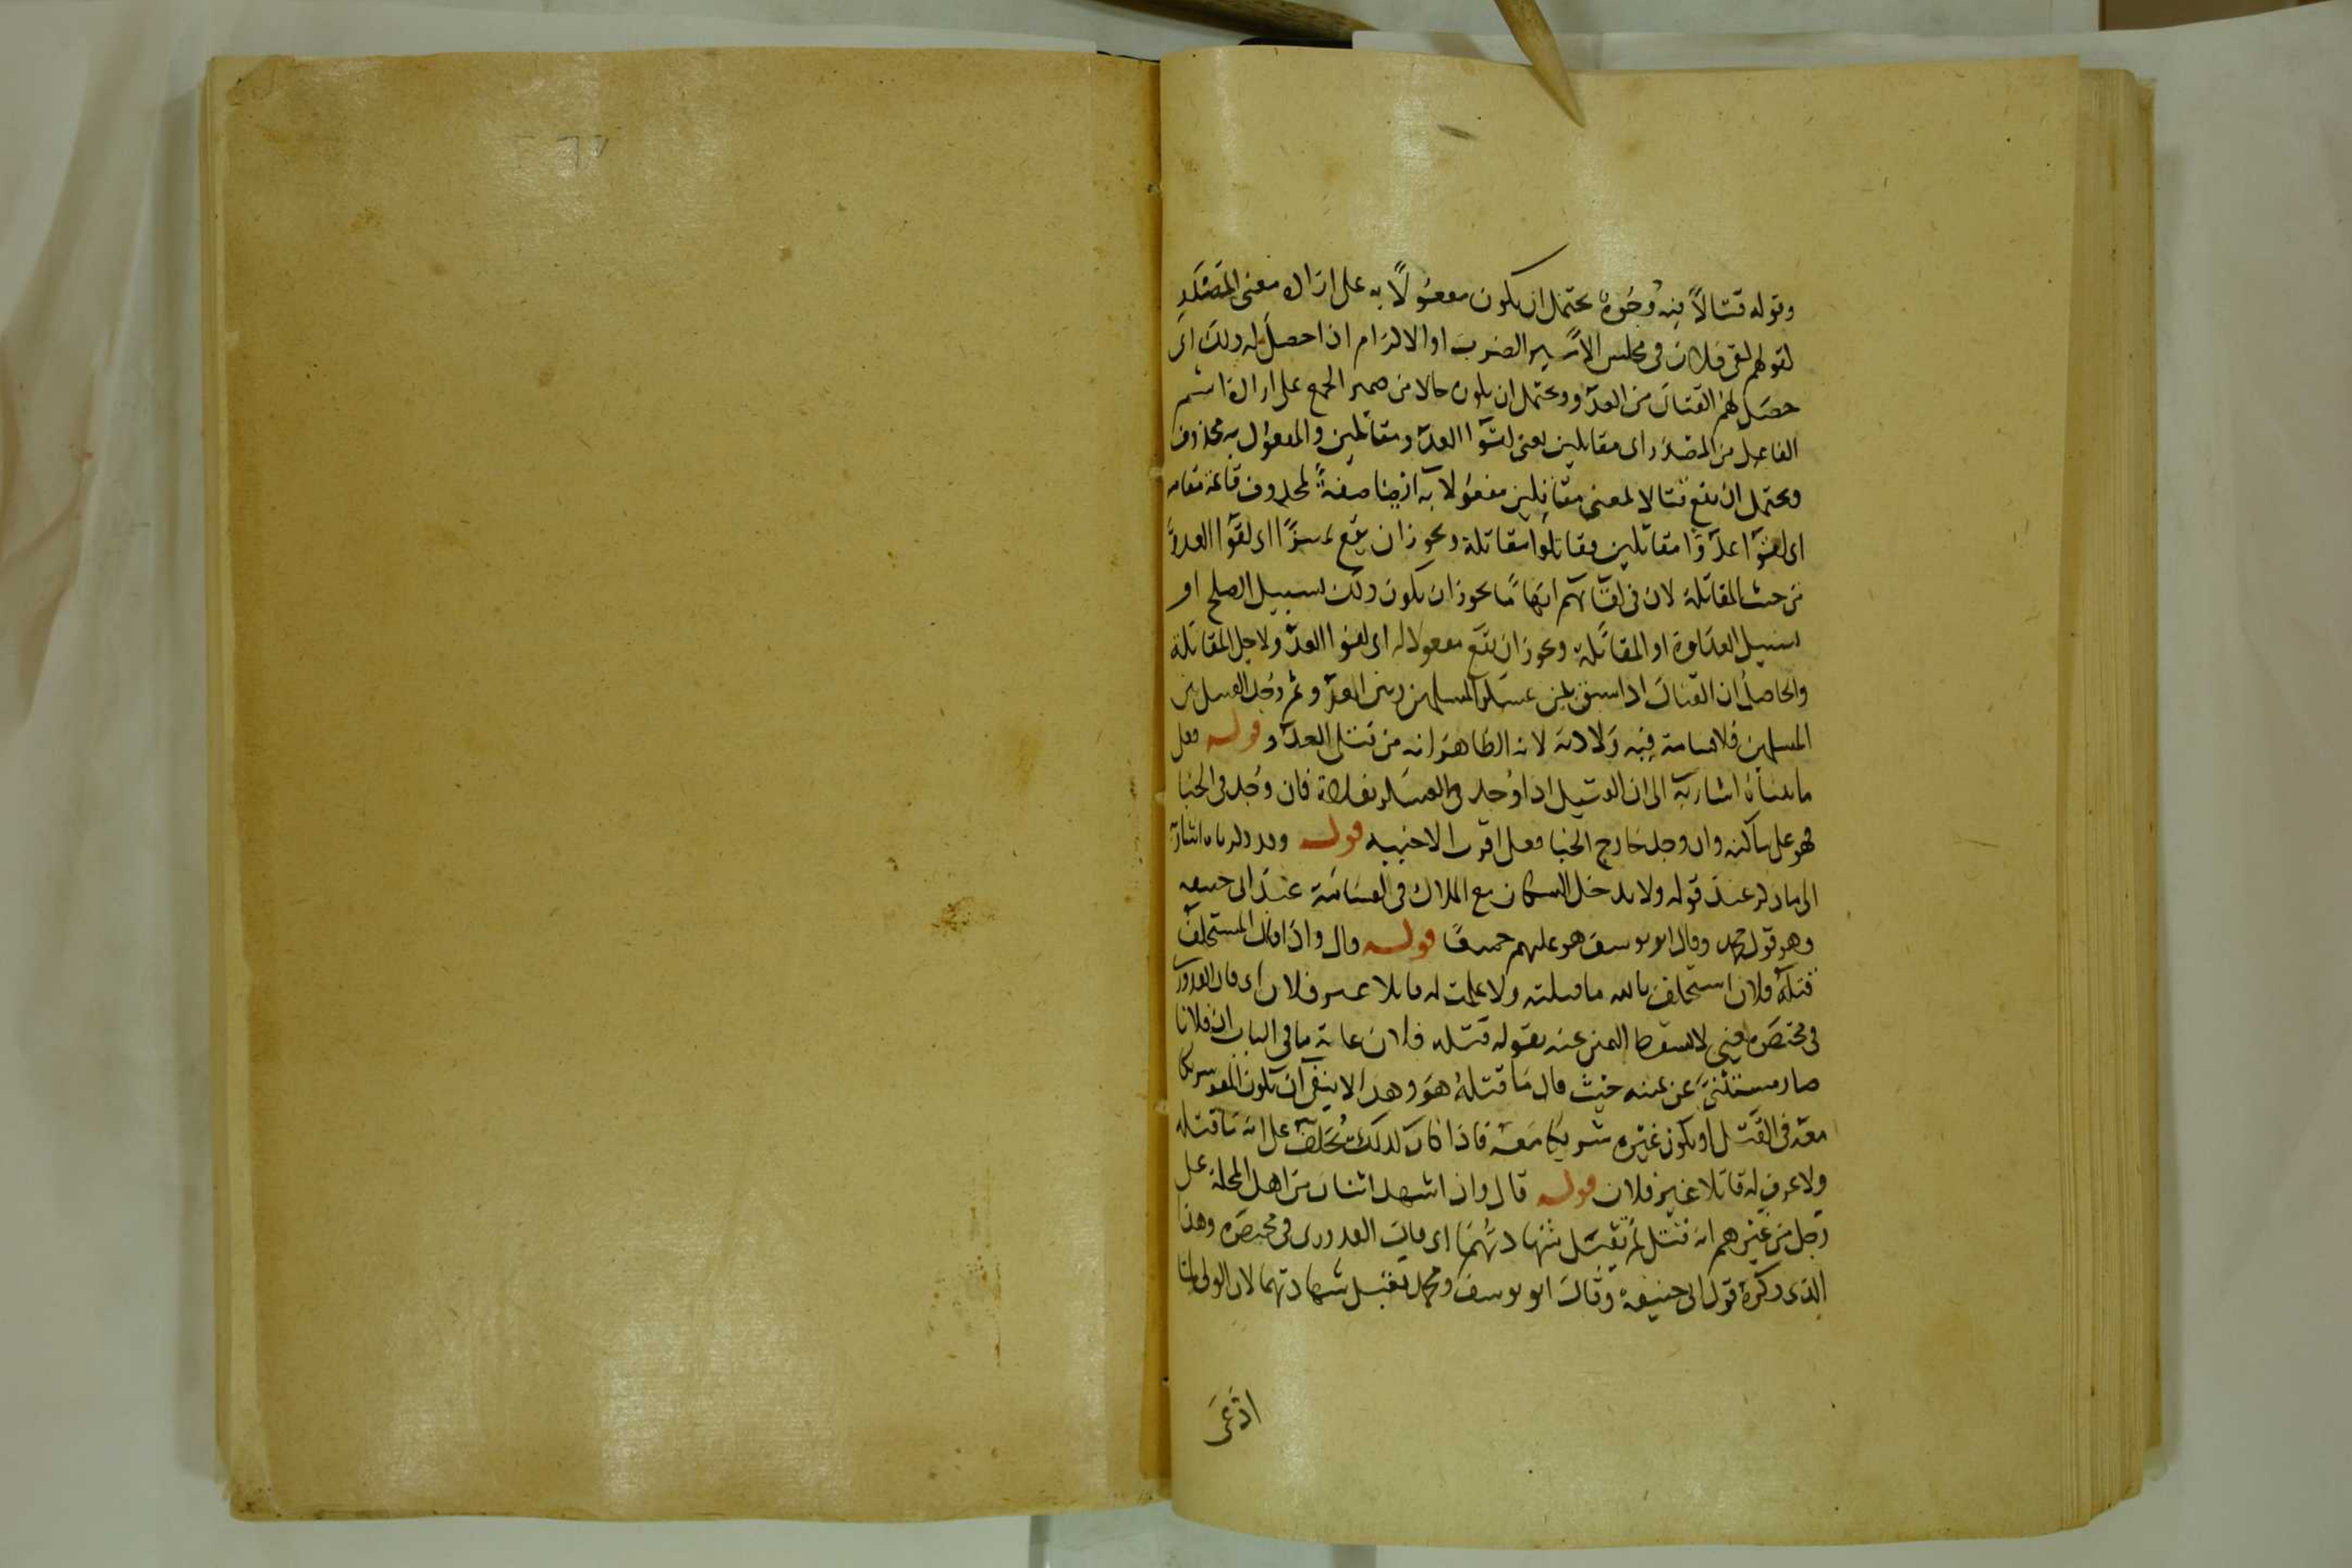 وقوله قتالاً فيه وجوه يحتمل ان يكون مفعولاً به على ارادة معنى المصدر
كقولهم لقي فلان في مجلس الأمير الضرب او الاكرام اذا حصل له ذلك اى
حصل لهم القتال من العدو ويحتمل ان يكون حالا من ضمير الجمع على ارادة اسم
الفاعل من المصدر اى مقاتلين يعنى لقوا العدو مقاتلين والمفعول به محذوف
ويحتمل ان يقع قتالا بمعنى مقاتلين مفعولا به ايضا صفةً لمحذوف قائمة مقامه
اى لقوا عدوًا مقاتلين فقاتلوا مقاتلة ويجوز ان يقع تمييزًا اى لقوا العدوَّ
من حيث المقاتلة لان فى لقائهم ابهامًا يجوز ان يكون ذلك بسبيل الصلح او
بسبيل العداوة او المقاتلة ويجوز ان يقع مفعولا له اى لقوا العدو لاجل المقاتلة
والحاصل ان القتال اذا بين عسكر المسلمين وبين العدو ثم وجد القتيل من
المسلمين فلا قسامة فيه ولا دية لان الظاهر انه من قتل العدو قوله فعلى
ما بيناه اشار به الى ان القتيل اذا وجد فى العسكر بفلاة فان وجد فى الخبا
فهو على ساكنه وان وجد خارج الخبا فعلى اقرب الاخبية قوله وقد ذكرناه اشارة
الى ما ذكر عند قوله ولا يدخل السكان مع الملاك فى القسامة عند ابى حنيفه
وهو قول محمد وقال ابو يوسف هو عليهم جميعًا قوله قال واذا قال المستحلف
قتله فلان استحلف بالله ما قتلته ولا علمت له قاتلا غير فلان اى قال القدورى
فى مختصره يعنى لا يسقط اليمين عنه بقوله قتله فلان غاية ما فى الباب ان فلانا
صار مستثنىً عن يمينه حيث قال ما قتله هو وهذا لا ينفى ان يكون المقر شريكا
معه فى القتل او يكون غيره شريكا معه فاذا كان كذلك يحلف على انه ما قتله
ولا عرف له قاتلا غير فلان قوله قال واذا شهد اثنان من اهل المحلة على
رجل من غيرهم انه قتل لم تقبل شهادتهما اى قال القدورى فى مختصره وهذا
الذى ذكره قول ابى حنيفة وقال ابو يوسف ومحمد تقبل شهادتهما لان الولى لما
ادّعى